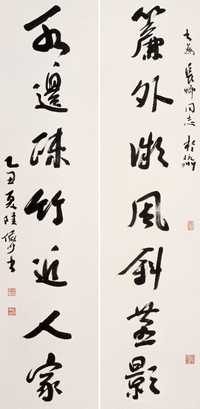 同志
簾外微風斜燕影
水邊疎竹近人家
乙丑夏陸儼少書